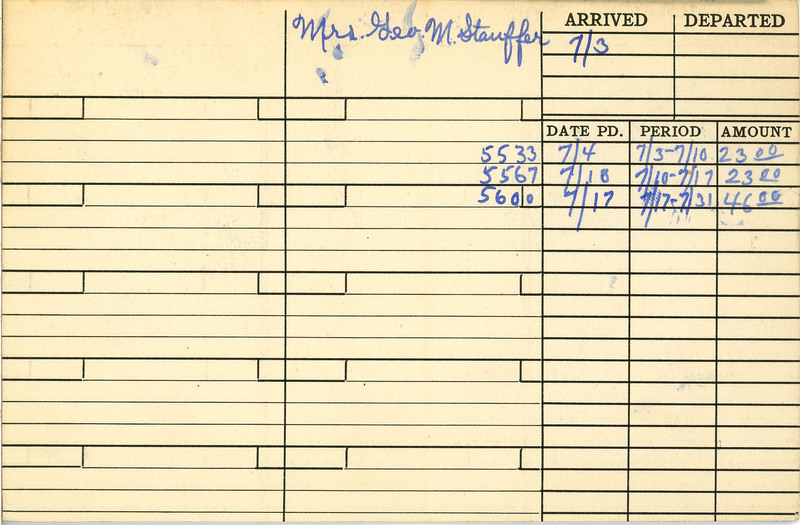 Mrs. Geo. M. Stauffer
ARRIVED DEPARTED
7/3
DATE PD. PERIOD AMOUNT
5533 7/4 7/3-7/10 23 00
5567 7/10 7/10-7/17 23 00
5600 7/17 7/17-7/31 46 00